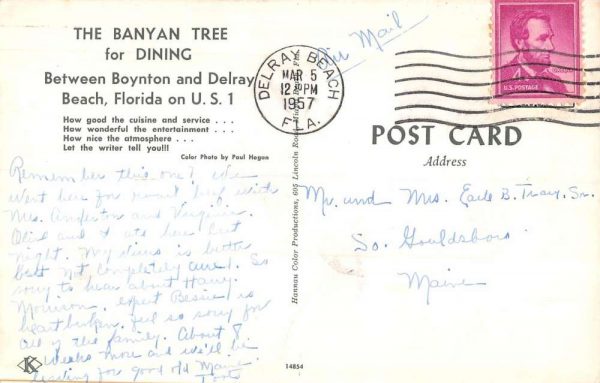 THE BANYAN TREE
for DINING
Between Boynton and Delray
Beach, Florida on U. S. 1
How good the cuisine and service . . .
How wonderful the entertainment . . .
How nice the atmosphere . . .
Let the writer tell you!!!
Color Photo by Paul Hogan
Remember this one? We
went here for roast beef with
Mrs. and Virginia.
Olive and I ate here last
night. My is better
but not completely cured. So
sorry to hear about Harry
Morrison. expect Bessie is
heartbroken. Feel so sorry for
all of the family. About 8
weeks more and we'll be
heading for good old Maine
K
Hannau Color Productions, 605 Lincoln Road, Fla.
14854
Air Mail
DELRAY BEACH
MAR 5
12 PM
1957
FLA.
U.S. POSTAGE
POST CARD
Address
Mr. and Mrs. Earle B. Tracy, Sr.
So. Gouldsboro
Maine